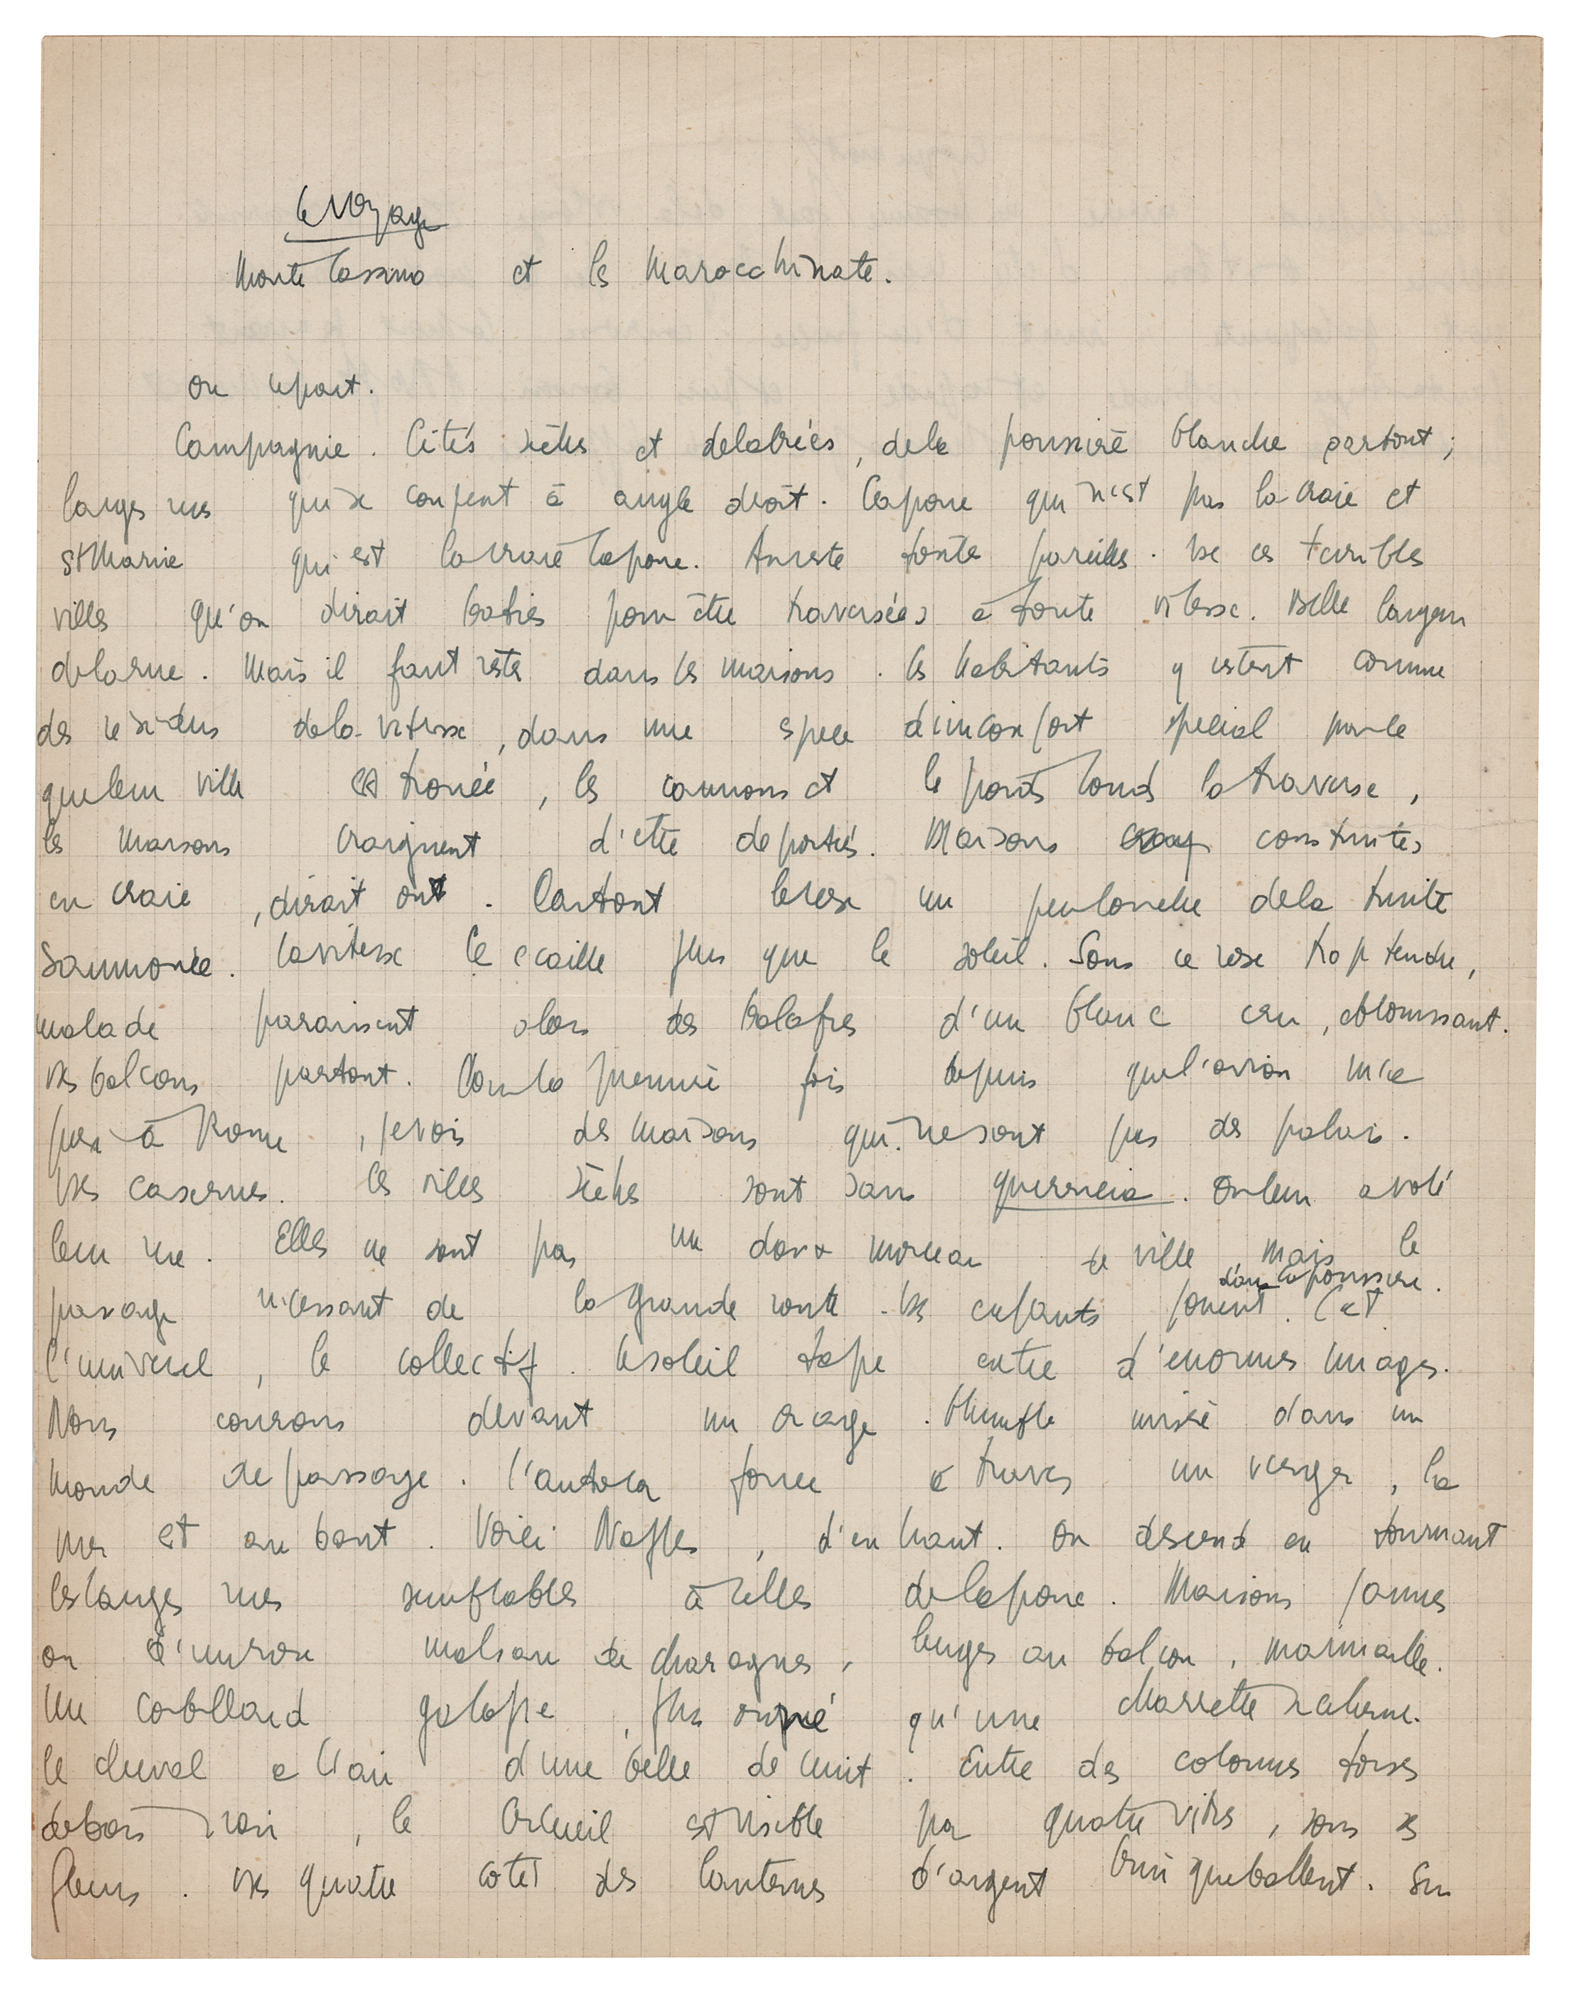 Le Voyage
Monte Cassino et les Marocchinate.
On repart.
Campagnie. Cités sèches et délabrées, de la poussière blanche partout;
larges rues qui se coupent à angle droit. Capoue qui n'est pas la vraie et
St Marie qui est la vraie Capoue. Au reste toutes pareilles. De ces terribles
villes qu'on dirait baties pour être traversées à toute vitesse. Belle largeur
de la rue. Mais il faut rester dans les maisons. Les habitants y restent comme
des résidus de la vitesse, dans une espece d'inconfort special parce
que leur ville est trouée, les camions et les poids lourds la traverse,
les maisons craignent d'être deportées. Maisons construites
en craie, dirait ont. Partout le rose un peu louche de la truite
saumonée. La vitesse l'écaille plus que le soleil. Sous ce rose trop tendre,
malade paraissent alors des balafres d'un blanc cru, eblouissant.
Des balcons partout. Pour la premiere fois depuis que l'avion m'a
posé à Rome, je vois des maisons qui ne sont pas des palais.
Des casernes. Ces villes sèches sont sans
On leur a volé
leur rue. Elles ne sont pas un doux morceau de ville mais le
passage incessant de la grande route. Des enfants jouent dans la poussiere. C'est
l'universel, le collectif. Le soleil tape entre d'enormes nuages.
Nous courons devant un orage. Humble misère dans un
monde de passage. L'autocar fonce à travers un verger, la
mer est au bout. Voici Naples, d'en haut. On descend en tournant
les larges rues semblables à celles de Capoue. Maisons jaunes
ou d'un rose malsain de charognes, linges au balcon, marmaille.
Un corbillard galope, plus orné qu'une charrette sicilienne.
Le cheval a l'air d'une belle de nuit. Entre des colonnes torses
de bois noir, le cercueil est visible par quatre vitres, sous ses
fleurs. Des quatre cotés des lanternes d'argent brinquebalent. Sur